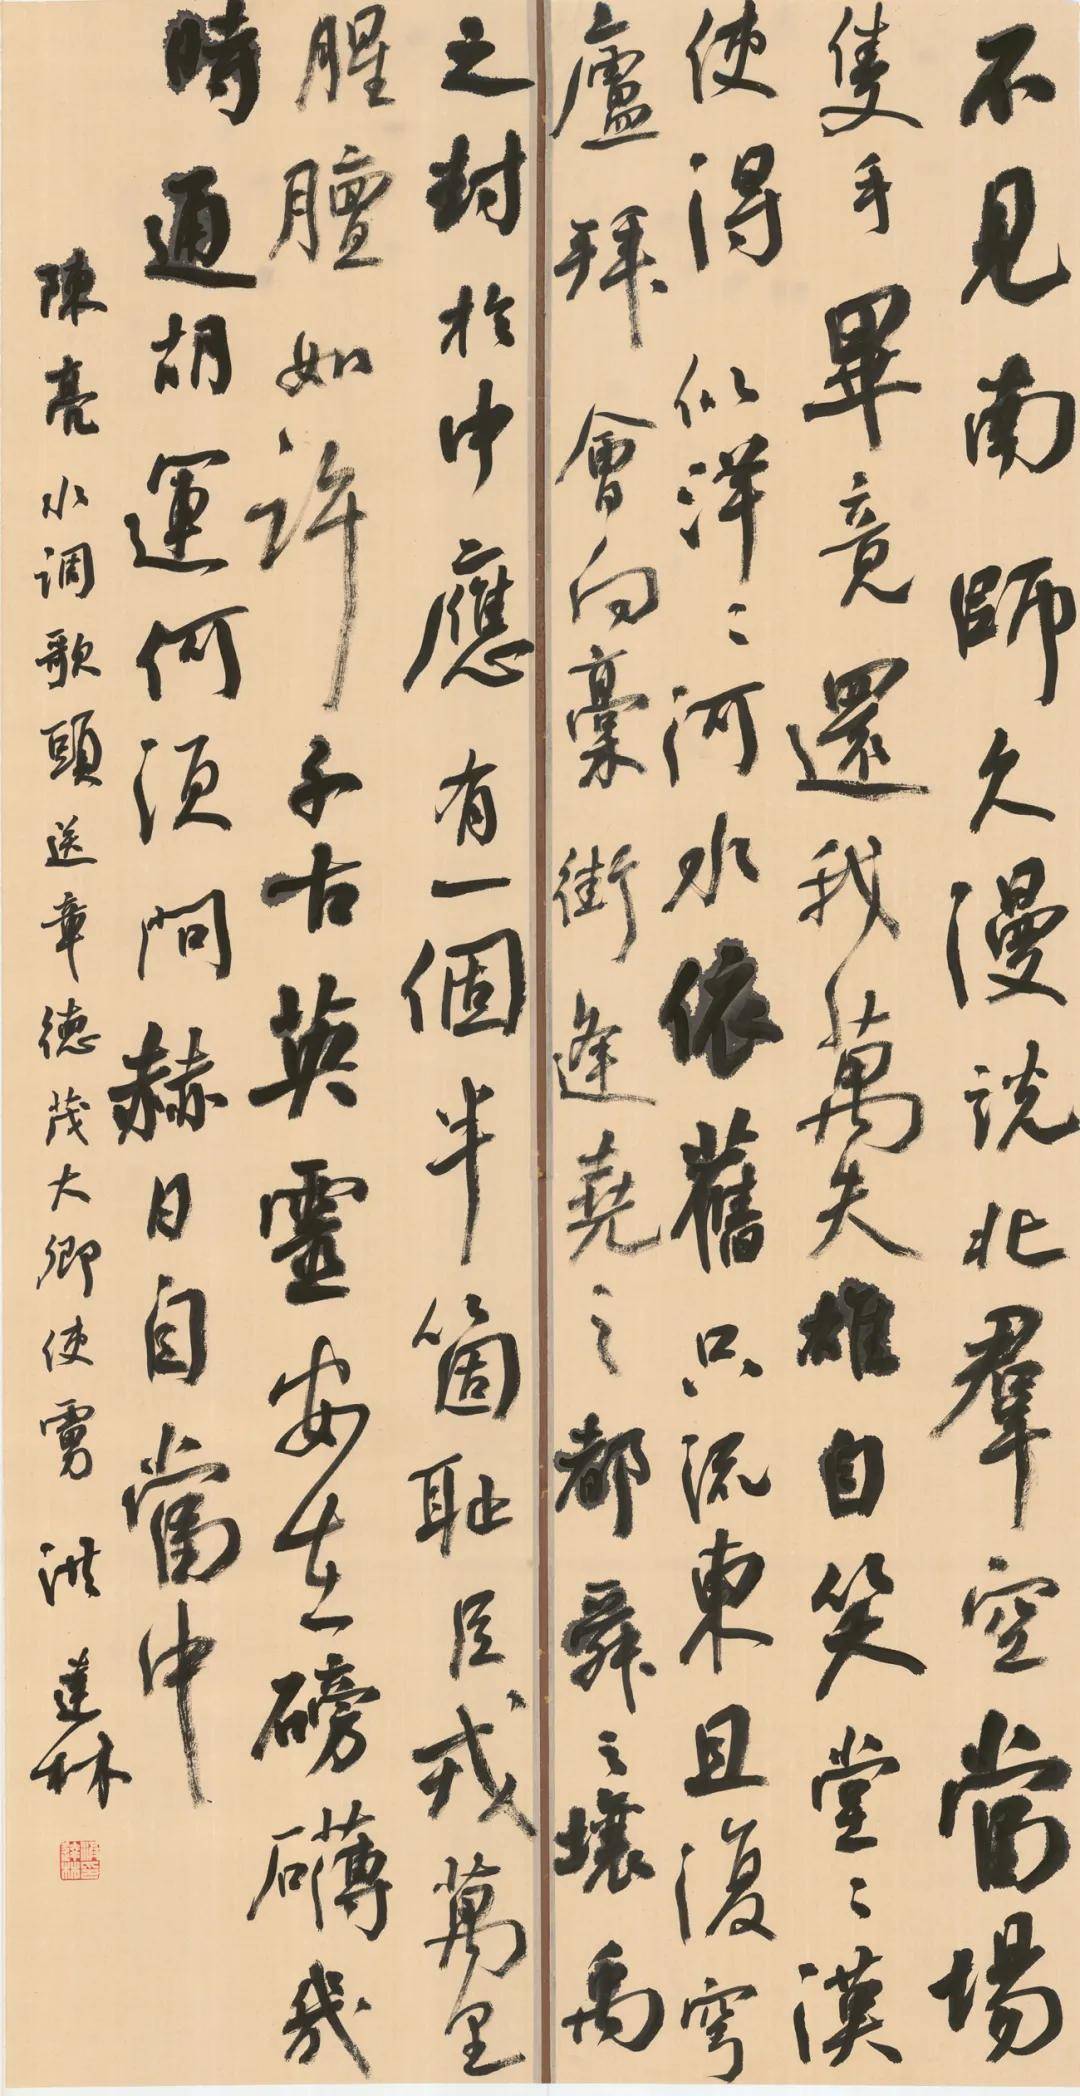 不見南師久漫說北群空當場
隻手畢竟還我萬夫雄自笑堂〻漢
使得似洋〻河水依舊只流東且復穹
廬拜會向藁街逢堯之都舜之壤禹
之封於中應有一個半箇恥臣戎萬里
腥膻如許千古英靈安在磅礴幾
時通胡運何須問赫日自當中
陳亮水调歌頭送章德茂大卿使虜 洪達林